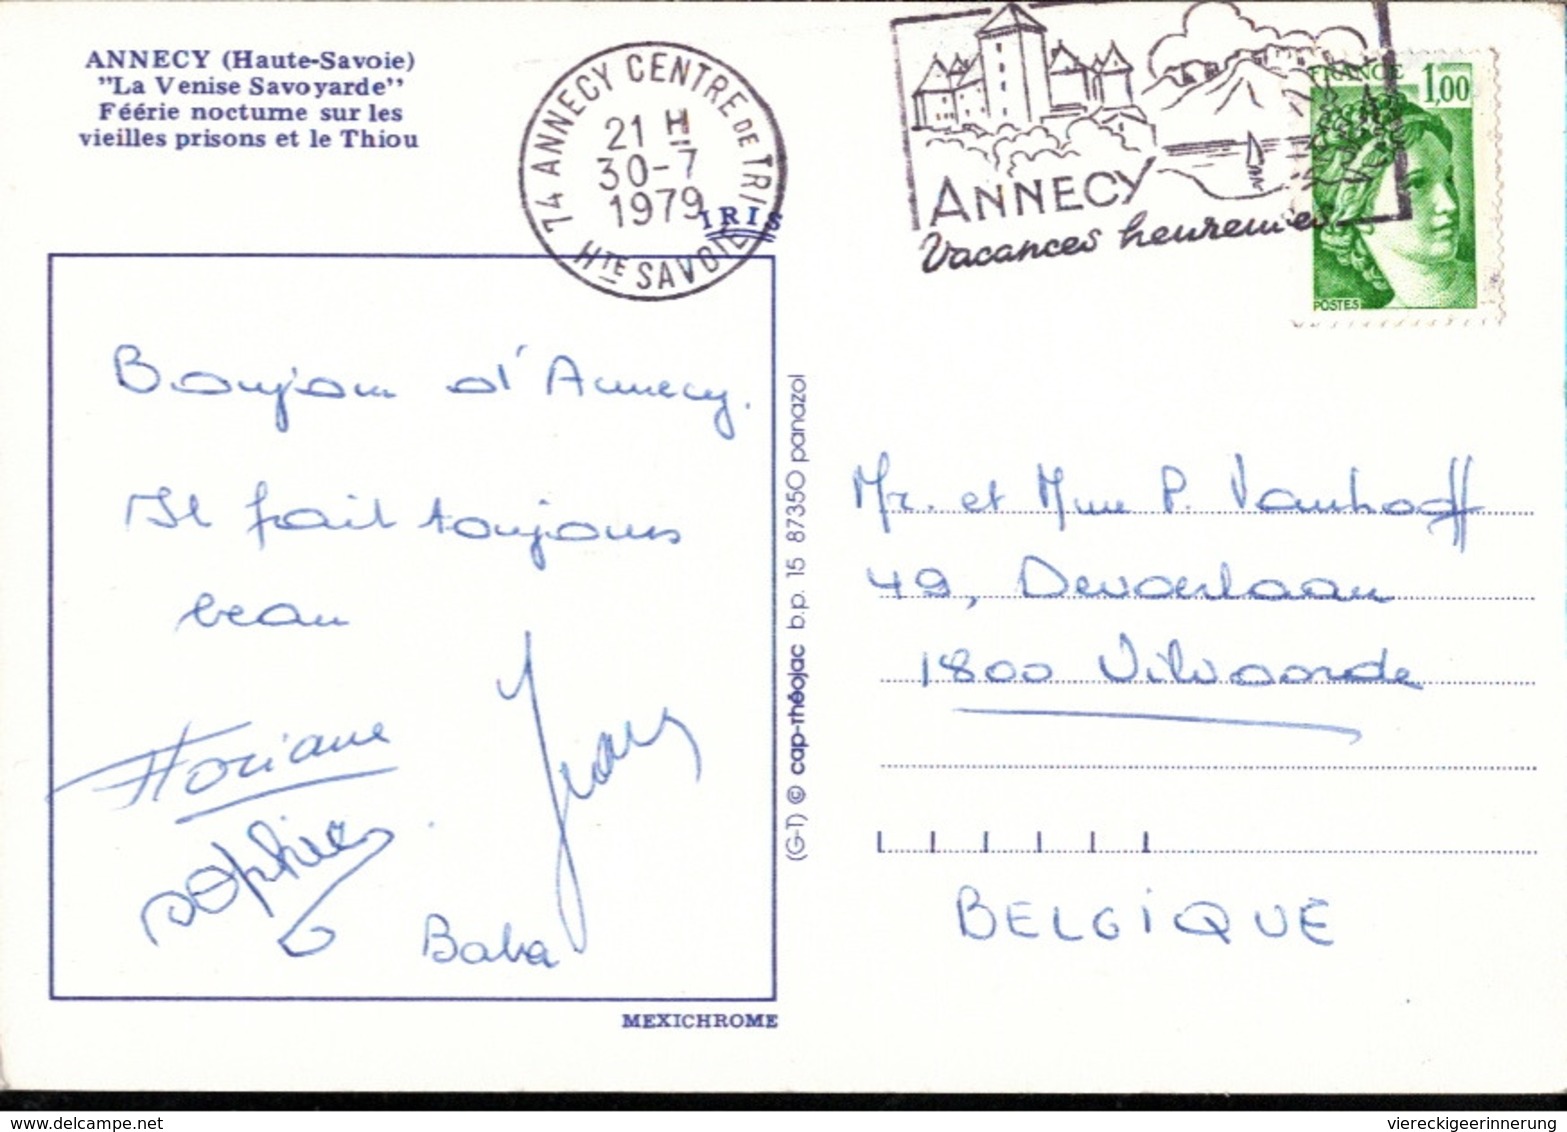 ANNECY (Haute-Savoie)
"La Venise Savoyarde"
Féérie nocturne sur les
vieilles prisons et le Thiou
74 ANNECY CENTRE DE TRI
21 H
30-7
1979
HTE SAVOIE
IRIS
ANNECY
Vacances heureuses
FRANCE 1,00
POSTES
Bonjour d'Annecy.
Il fait toujours
beau
Floriane
Sophie
Baba
MEXICHROME
(G-T) © cap-théojac b.p. 15 87350 panazol
Mr. et Mme P. Vanhoff
49, Devaerlaan
1800 Vilvoorde
BELGIQUE
delcampe.net
viereckigeerinnerung